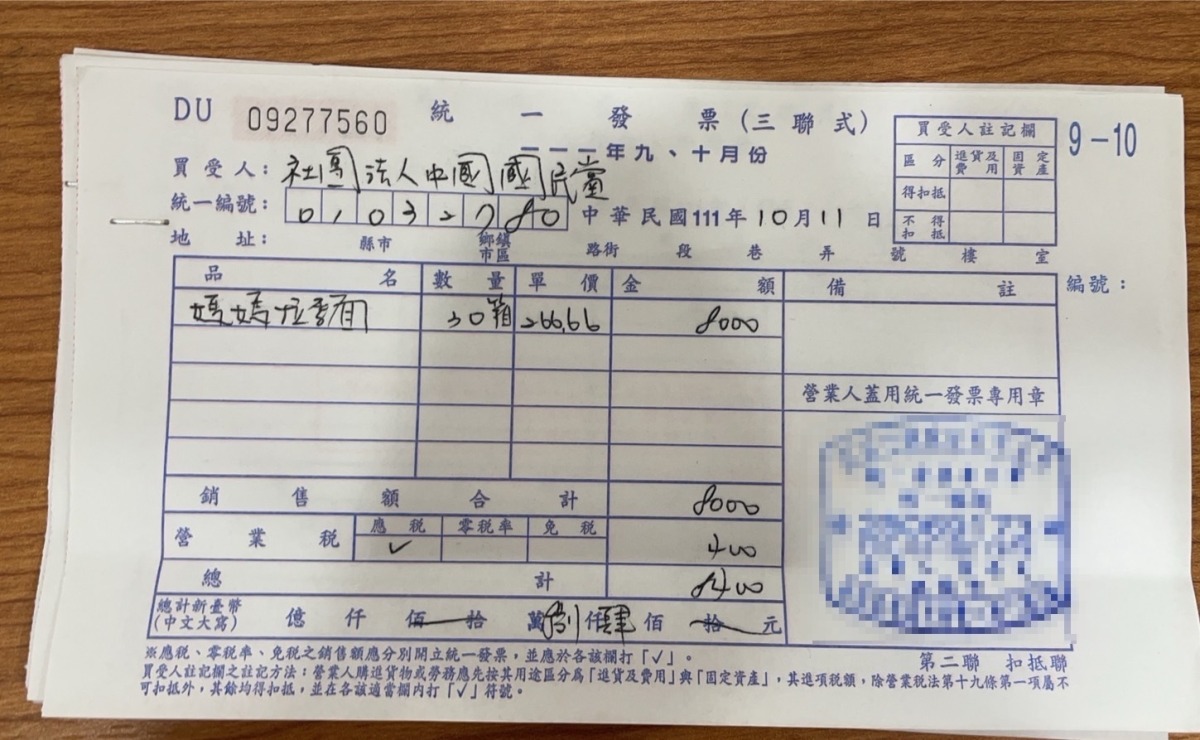 DU 09277560 統一發票(三聯式) 9-10
一一一年九、十月份
買受人註記欄
區分 進貨及費用 固定資產
得扣抵
不得扣抵
買受人: 社團法人中國國民黨
統一編號: 01032780 中華民國111年10月11日
地址: 縣市 鄉鎮市區 路街 段 巷 弄 號 樓 室
品名 數量 單價 金額 備註 編號:
媽媽拉香麵 30箱 266.66 8000
營業人蓋用統一發票專用章
銷售額合計 8000
營業稅 應稅 零稅率 免稅
✓ 400
總計 8400
總計新臺幣(中文大寫) 億 仟 佰 拾 萬 捌仟肆佰 拾 元
第二聯 扣抵聯
※應稅、零稅率、免稅之銷售額應分別開立統一發票,並應於各該欄打「✓」。
買受人註記欄之註記方法:營業人購進貨物或勞務應先按其用途區分為「進貨及費用」與「固定資產」,其進項稅額,除營業稅法第十九條第一項屬不
可扣抵外,其餘均得扣抵,並在各該適當欄內打「✓」符號。